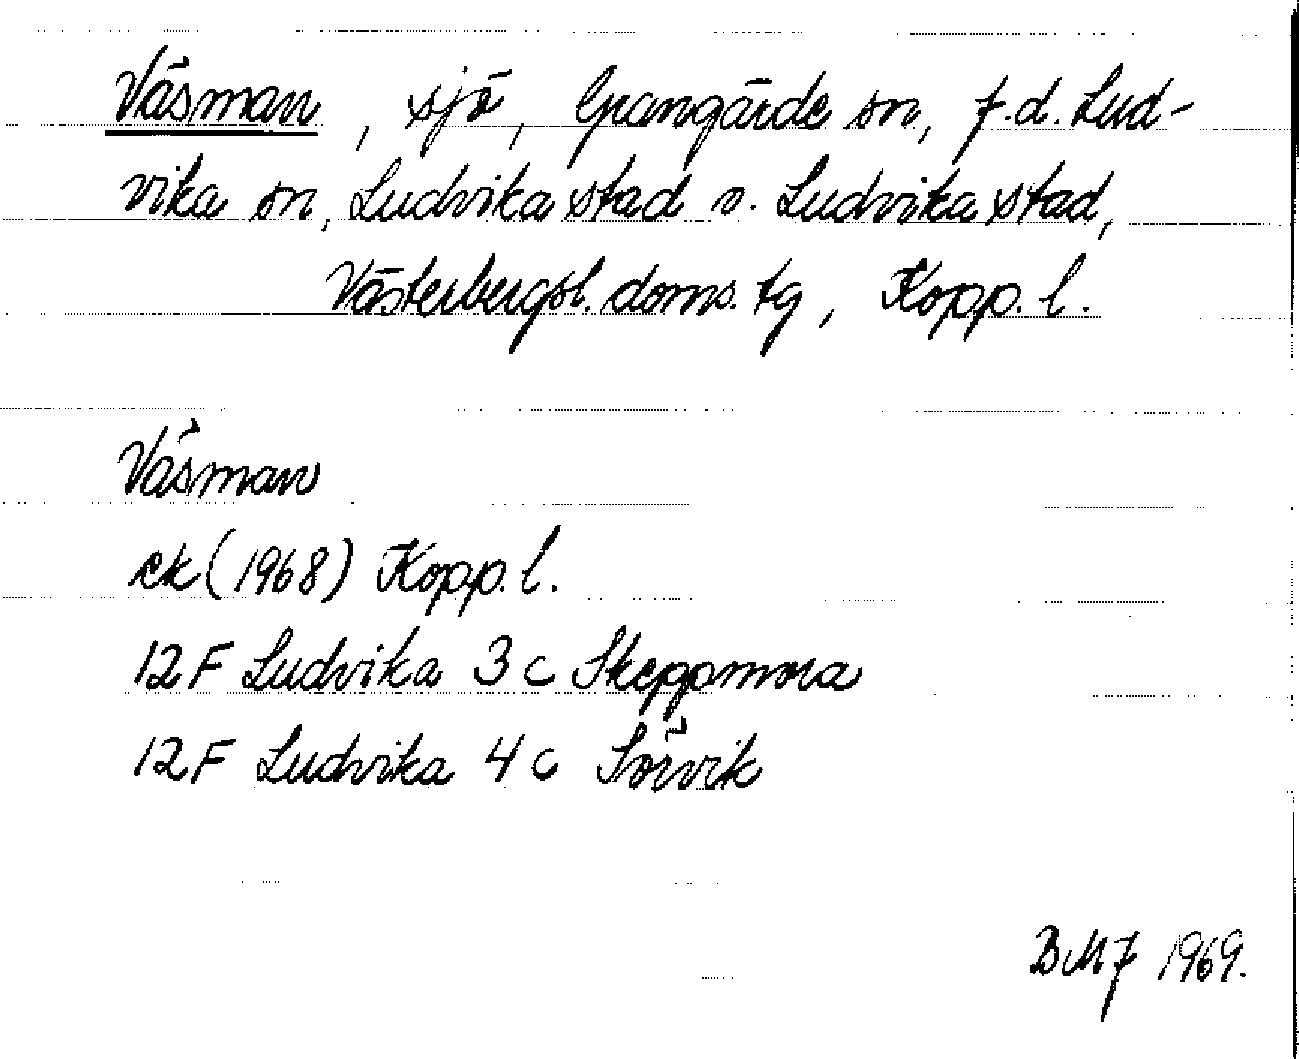 Väsman, sjö, Grangärde sn, f.d. Lud-
vika sn, Ludvika stad o. Ludvika stad,
Västerbergsl. doms. tg, Kopp. l.
Väsman
ek (1968) Kopp. l.
12F Ludvika 3c Skeppmora
12F Ludvika 4c Sörvik
BMJ 1969.